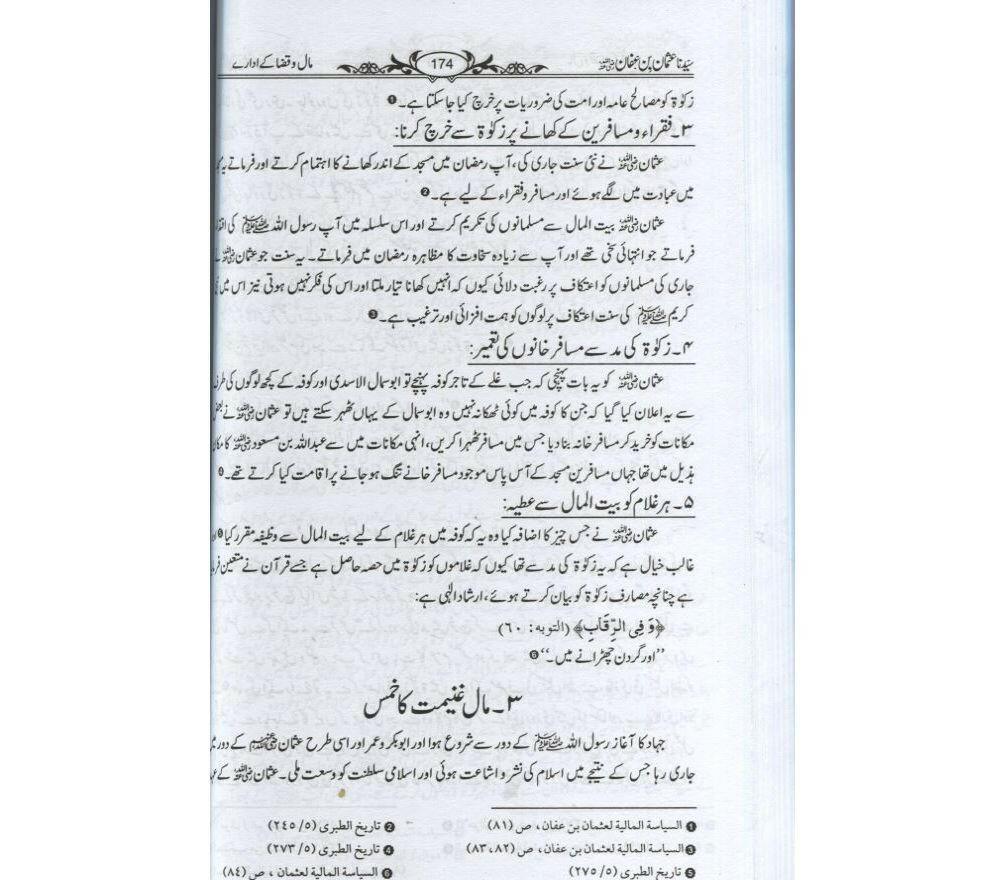 سیّدنا عثمان بن عفان رضی اللہ عنہ 174 مال و قضا کے ادارے
زکوٰۃ کو مصالح عامہ اور امت کی ضروریات پر خرچ کیا جا سکتا ہے۔❶
۳۔ فقراء و مسافرین کے کھانے پر زکوٰۃ سے خرچ کرنا:
عثمان رضی اللہ عنہ نے نئی سنت جاری کی، آپ رمضان میں مسجد کے اندر کھانے کا اہتمام کرتے اور فرماتے یہ
میں عبادت میں لگے ہوئے اور مسافر و فقراء کے لیے ہے۔❷
عثمان رضی اللہ عنہ بیت المال سے مسلمانوں کی تکریم کرتے اور اس سلسلہ میں آپ رسول اللہ ﷺ کی
فرماتے جو انتہائی سخی تھے اور آپ سے زیادہ سخاوت کا مظاہرہ رمضان میں فرماتے۔ یہ سنت جو عثمان رضی اللہ عنہ
جاری کی مسلمانوں کو اعتکاف پر رغبت دلائی کیوں کہ انہیں کھانا تیار ملتا اور اس کی فکر نہیں ہوتی نیز اس میں
کریم ﷺ کی سنت اعتکاف پر لوگوں کو ہمت افزائی اور ترغیب ہے۔❸
۴۔ زکوٰۃ کی مد سے مسافر خانوں کی تعمیر:
عثمان رضی اللہ عنہ کو یہ بات پہنچی کہ جب غلے کے تاجر کوفہ پہنچے تو ابوسمال الاسدی اور کوفہ کے کچھ لوگوں کی
سے یہ اعلان کیا گیا کہ جن کا کوفہ میں کوئی ٹھکانہ نہیں وہ ابوسمال کے یہاں ٹھہر سکتے ہیں تو عثمان رضی اللہ عنہ نے
مکانات کو خرید کر مسافر خانہ بنا دیا جس میں مسافر ٹھہرا کریں، انہی مکانات میں سے عبداللہ بن مسعود رضی اللہ عنہ کا
ہذیل میں تھا جہاں مسافرین مسجد کے آس پاس موجود مسافر خانے تنگ ہو جانے پر اقامت کیا کرتے تھے۔
۵۔ ہر غلام کو بیت المال سے عطیہ:
عثمان رضی اللہ عنہ نے جس چیز کا اضافہ کیا وہ یہ کہ کوفہ میں ہر غلام کے لیے بیت المال سے وظیفہ مقرر کیا
غالب خیال ہے کہ یہ زکوٰۃ کی مد سے تھا کیوں کہ غلاموں کو زکوٰۃ میں حصہ حاصل ہے جسے قرآن نے متعین
ہے چنانچہ مصارف زکوٰۃ کو بیان کرتے ہوئے، ارشاد الٰہی ہے:
﴿وَ فِی الرِّقَابِ﴾ (التوبه: ٦٠)
’’اور گردن چھڑانے میں۔‘‘❻
۳۔ مال غنیمت کا خمس
جہاد کا آغاز رسول اللہ ﷺ کے دور سے شروع ہوا اور ابوبکر و عمر اور اسی طرح عثمان رضی اللہ عنہم کے دور
جاری رہا جس کے نتیجے میں اسلام کی نشر و اشاعت ہوئی اور اسلامی سلطنت کو وسعت ملی۔ عثمان رضی اللہ عنہ کے
❶ السیاسة المالية لعثمان بن عفان ، ص (٨١) ❷ تاریخ الطبری (٢٤٥/٥)
❸ السیاسة المالية لعثمان بن عفان، ص (٨٢، ٨٣) ❹ تاریخ الطبری (٢٧٣/٥)
❺ تاریخ الطبری (٢٧٥/٥) ❻ السیاسة المالية لعثمان ، ص (٨٤)